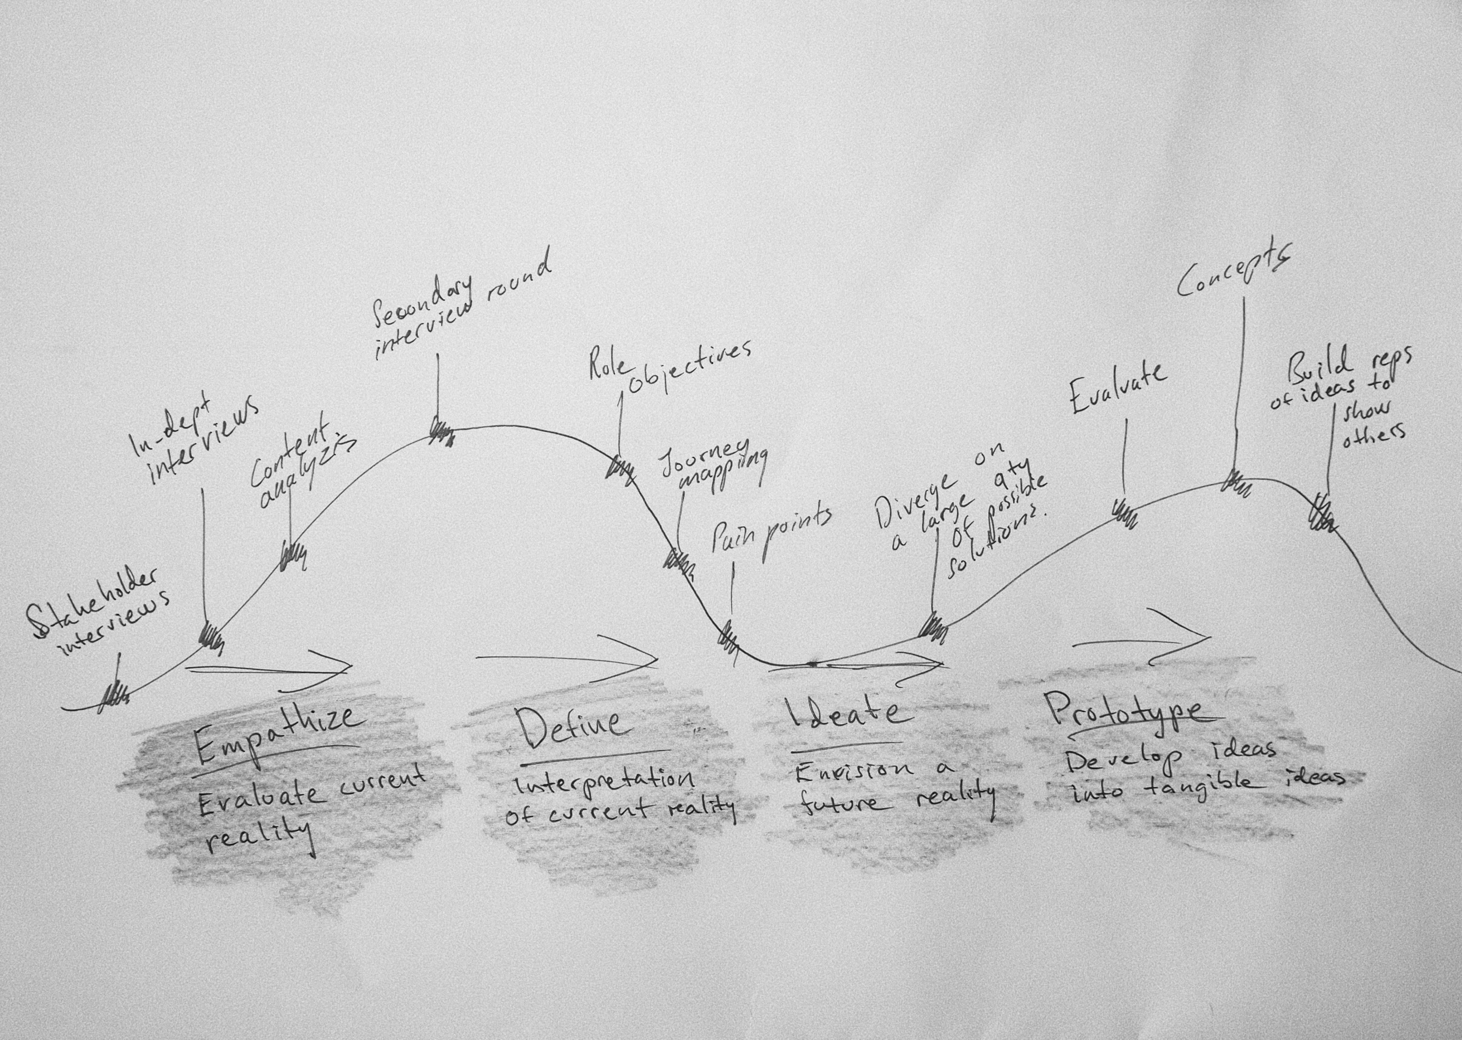 Stakeholder
interviews
In-dept
interviews
Content
analyzis
Secondary
interview round
Role
objectives
Journey
mapping
Pain points
Diverge on
a large qty
of possible
solutions.
Evaluate
Concepts
Build reps
of ideas to
show
others
Empathize
Evaluate current
reality
Define
Interpretation
of current reality
Ideate
Envision a
future reality
Prototype
Develop ideas
into tangible ideas